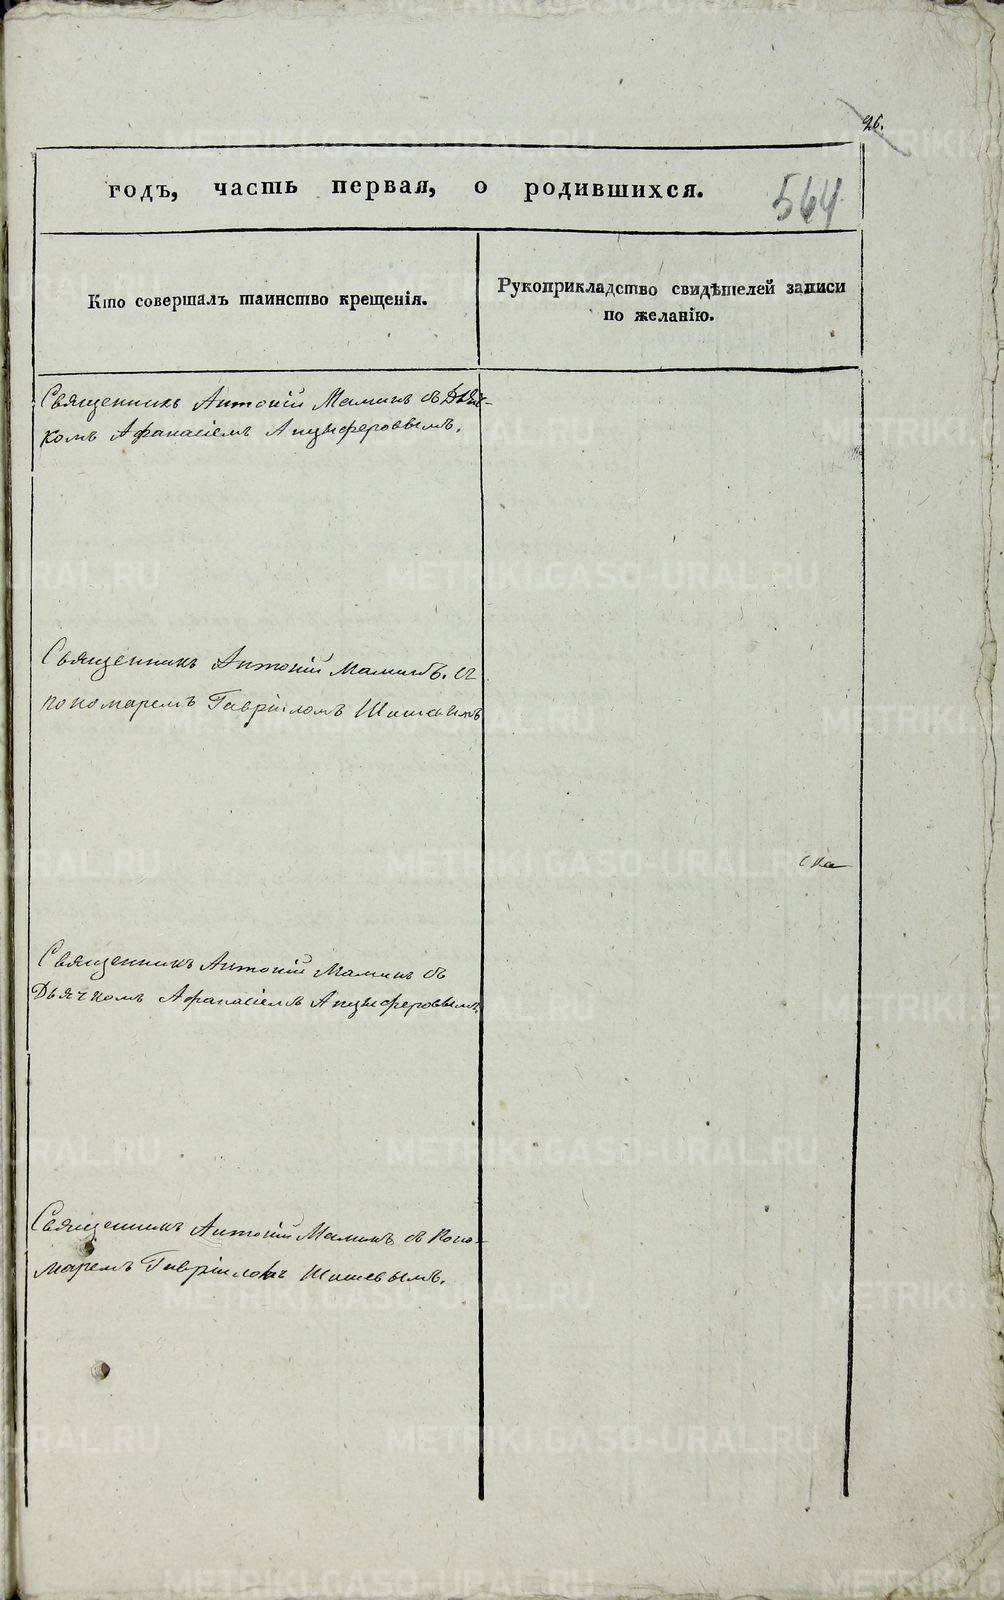 26.
годъ, часть первая, о родившихся.
564
Кто совершалъ таинство крещенія.
Рукоприкладство свидѣтелей записи
по желанію.
Священникъ Антоній Маминъ съ Дьяч-
комъ Афанасіемъ Анциферовымъ.
Священникъ Антоній Маминъ. съ
пономаремъ Гавріиломъ
Священникъ Антоній Маминъ съ
Дьячкомъ Афанасіемъ Анциферовымъ.
Священникъ Антоній Маминъ съ Поно-
маремъ Гавріиломъ
METRIKI.GASO-URAL.RU